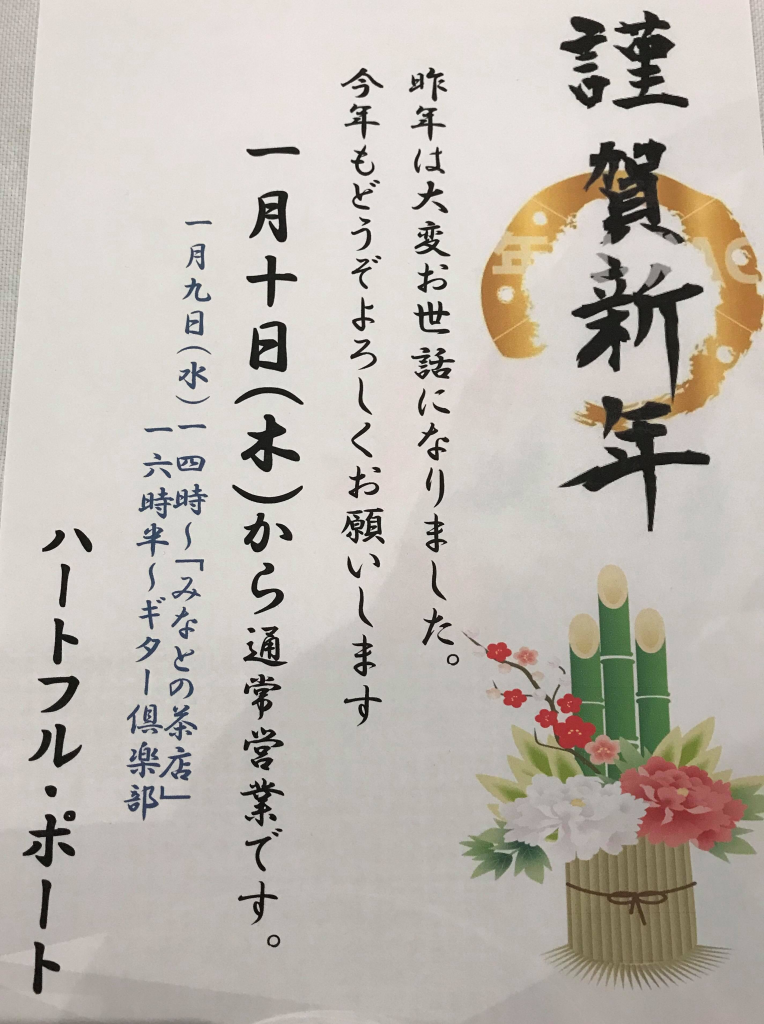 謹賀新年
昨年は大変お世話になりました。
今年もどうぞよろしくお願いします
一月十日(木)から通常営業です。
一月九日(水)一四時～「みなとの茶店」
一六時半～ギター倶楽部
ハートフル・ポート